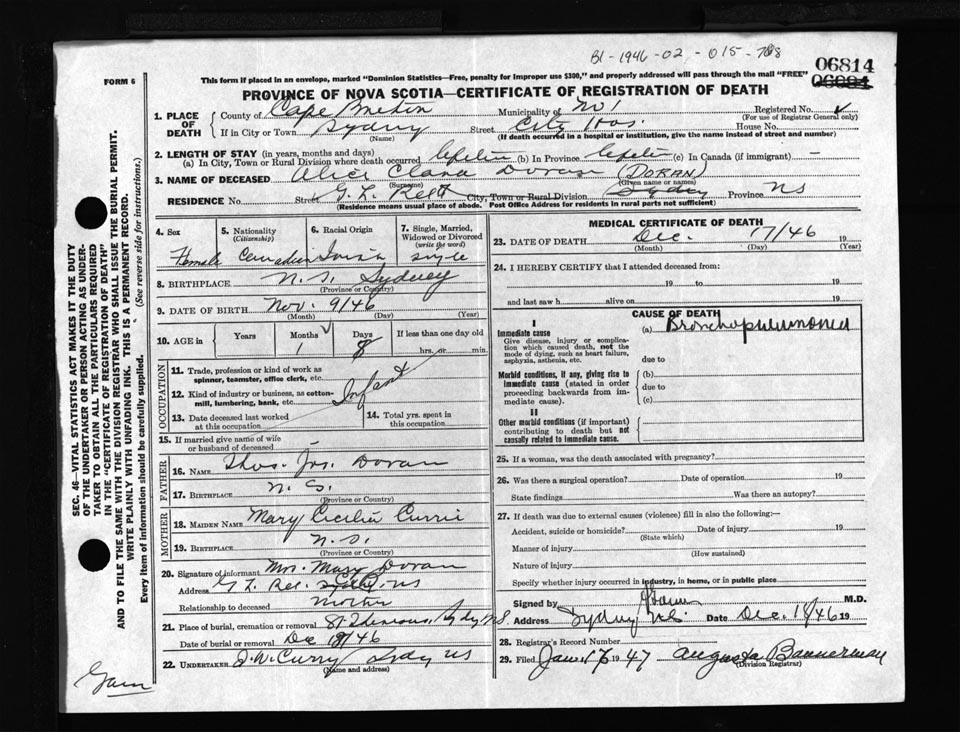 B1-1946-02-015-768
06814
06684
FORM 6
This form if placed in an envelope, marked "Dominion Statistics—Free, penalty for improper use $300," and properly addressed will pass through the mail "FREE"
PROVINCE OF NOVA SCOTIA—CERTIFICATE OF REGISTRATION OF DEATH
SEC. 46—VITAL STATISTICS ACT MAKES IT THE DUTY
OF THE UNDERTAKER OR PERSON ACTING AS UNDER-
TAKER TO OBTAIN ALL THE PARTICULARS REQUIRED
IN THE "CERTIFICATE OF REGISTRATION OF DEATH"
AND TO FILE THE SAME WITH THE DIVISION REGISTRAR WHO SHALL ISSUE THE BURIAL PERMIT.
WRITE PLAINLY WITH UNFADING INK. THIS IS A PERMANENT RECORD.
Every item of information should be carefully supplied. (See reverse side for instructions.)
1. PLACE OF DEATH County of Cape Breton Municipality of No 1 Registered No.
(For use of Registrar General only)
If in City or Town Sydney Street City Hos. House No.
(Name) (If death occurred in a hospital or institution, give the name instead of street and number)
2. LENGTH OF STAY (in years, months and days)
(a) In City, Town or Rural Division where death occurred lifetime (b) In Province lifetime (c) In Canada (if immigrant) —
3. NAME OF DECEASED Alice Clara Doran (DORAN)
(Surname) (Given name or names)
RESIDENCE No. Street G. L. City, Town or Rural Division Sydney Province NS
(Residence means usual place of abode. Post Office Address for residents in rural parts not sufficient)
4. Sex Female
5. Nationality (Citizenship) Canadian
6. Racial Origin Irish
7. Single, Married, Widowed or Divorced (write the word) single
8. BIRTHPLACE N.S. Sydney
(Province or Country)
9. DATE OF BIRTH Nov. 9/46
(Month) (Day) (Year)
10. AGE in Years Months 1 Days 8 If less than one day old hrs. or min.
OCCUPATION
11. Trade, profession or kind of work as spinner, teamster, office clerk, etc.
Infant
12. Kind of industry or business, as cotton-mill, lumbering, bank, etc.
13. Date deceased last worked at this occupation
14. Total yrs. spent in this occupation
15. If married give name of wife or husband of deceased
FATHER
16. NAME Thos. Jos. Doran
17. BIRTHPLACE N. S.
(Province or Country)
MOTHER
18. MAIDEN NAME Mary Cecilia Currie
19. BIRTHPLACE N.S.
(Province or Country)
20. Signature of informant Mrs. Mary Doran
Address G. L. Sydney NS
Relationship to deceased mother
21. Place of burial, cremation or removal Sydney N.S.
Date of burial or removal Dec 18/46
22. UNDERTAKER J.W. Curry Sydney NS
(Name and address)
MEDICAL CERTIFICATE OF DEATH
23. DATE OF DEATH Dec. 17/46 19
(Month) (Day) (Year)
24. I HEREBY CERTIFY that I attended deceased from:
19 to 19
and last saw h alive on 19
CAUSE OF DEATH
I
Immediate cause (a) Bronchopneumonia
Give disease, injury or complication which caused death, not the mode of dying, such as heart failure, asphyxia, asthenia, etc.
due to
Morbid conditions, if any, giving rise to immediate cause (stated in order proceeding backwards from immediate cause). (b)
due to
(c)
II
Other morbid conditions (if important) contributing to death but not causally related to immediate cause.
25. If a woman, was the death associated with pregnancy?
26. Was there a surgical operation? Date of operation 19
State findings Was there an autopsy?
27. If death was due to external causes (violence) fill in also the following:—
Accident, suicide or homicide? Date of injury 19
(State which)
Manner of injury
(How sustained)
Nature of injury
Specify whether injury occurred in industry, in home, or in public place
Signed by M.D.
Address Sydney NS Date Dec. 18/46 19
28. Registrar's Record Number
29. Filed Jan 17 1947 Augusta Bannerman
(Division Registrar)